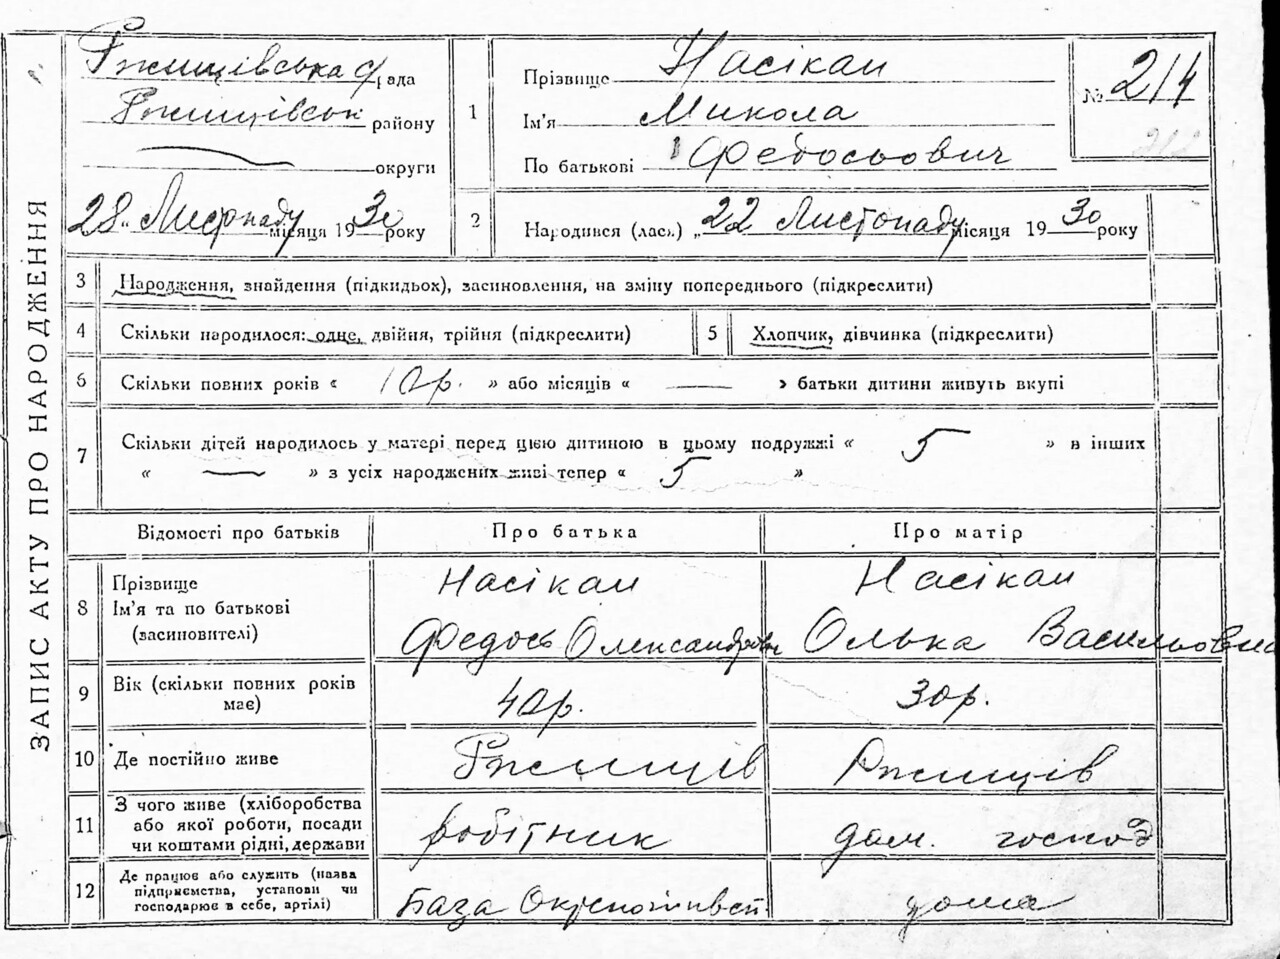 ЗАПИС АКТУ ПРО НАРОДЖЕННЯ
Ржищівська с/рада
Ржищівськ району
округи
28 Листопаду місяця 1930 року
1
Прізвище Насікан
Ім'я Микола
По батькові Федосьович
№ 214
212
2
Народився (лась) „22 Листопаду місяця 1930 року
3 Народження, знайдення (підкидьох), засиновлення, на зміну попереднього (підкреслити)
4 Скільки народилося: одне, двійня, трійня (підкреслити)
5 Хлопчик, дівчинка (підкреслити)
6 Скільки повних років « 10р. » або місяців « — » батьки дитини живуть вкупі
7 Скільки дітей народилось у матері перед цією дитиною в цьому подружжі « 5 » в інших
« — » з усіх народжених живі тепер « 5 »
Відомості про батьків Про батька Про матір
8 Прізвище
Ім'я та по батькові
(засиновителі)
Насікан
Федось Олександрович
Насікан
Олька Васильовна
9 Вік (скільки повних років
має)
40р.
30р.
10 Де постійно живе Ржищів Ржищів
11 З чого живе (хліборобства
або якої роботи, посади
чи коштами рідні, держави
робітник
дом. господ
12 Де працює або служить (назва
підприємства, установи чи
господарює в себе, артілі)
База
дома